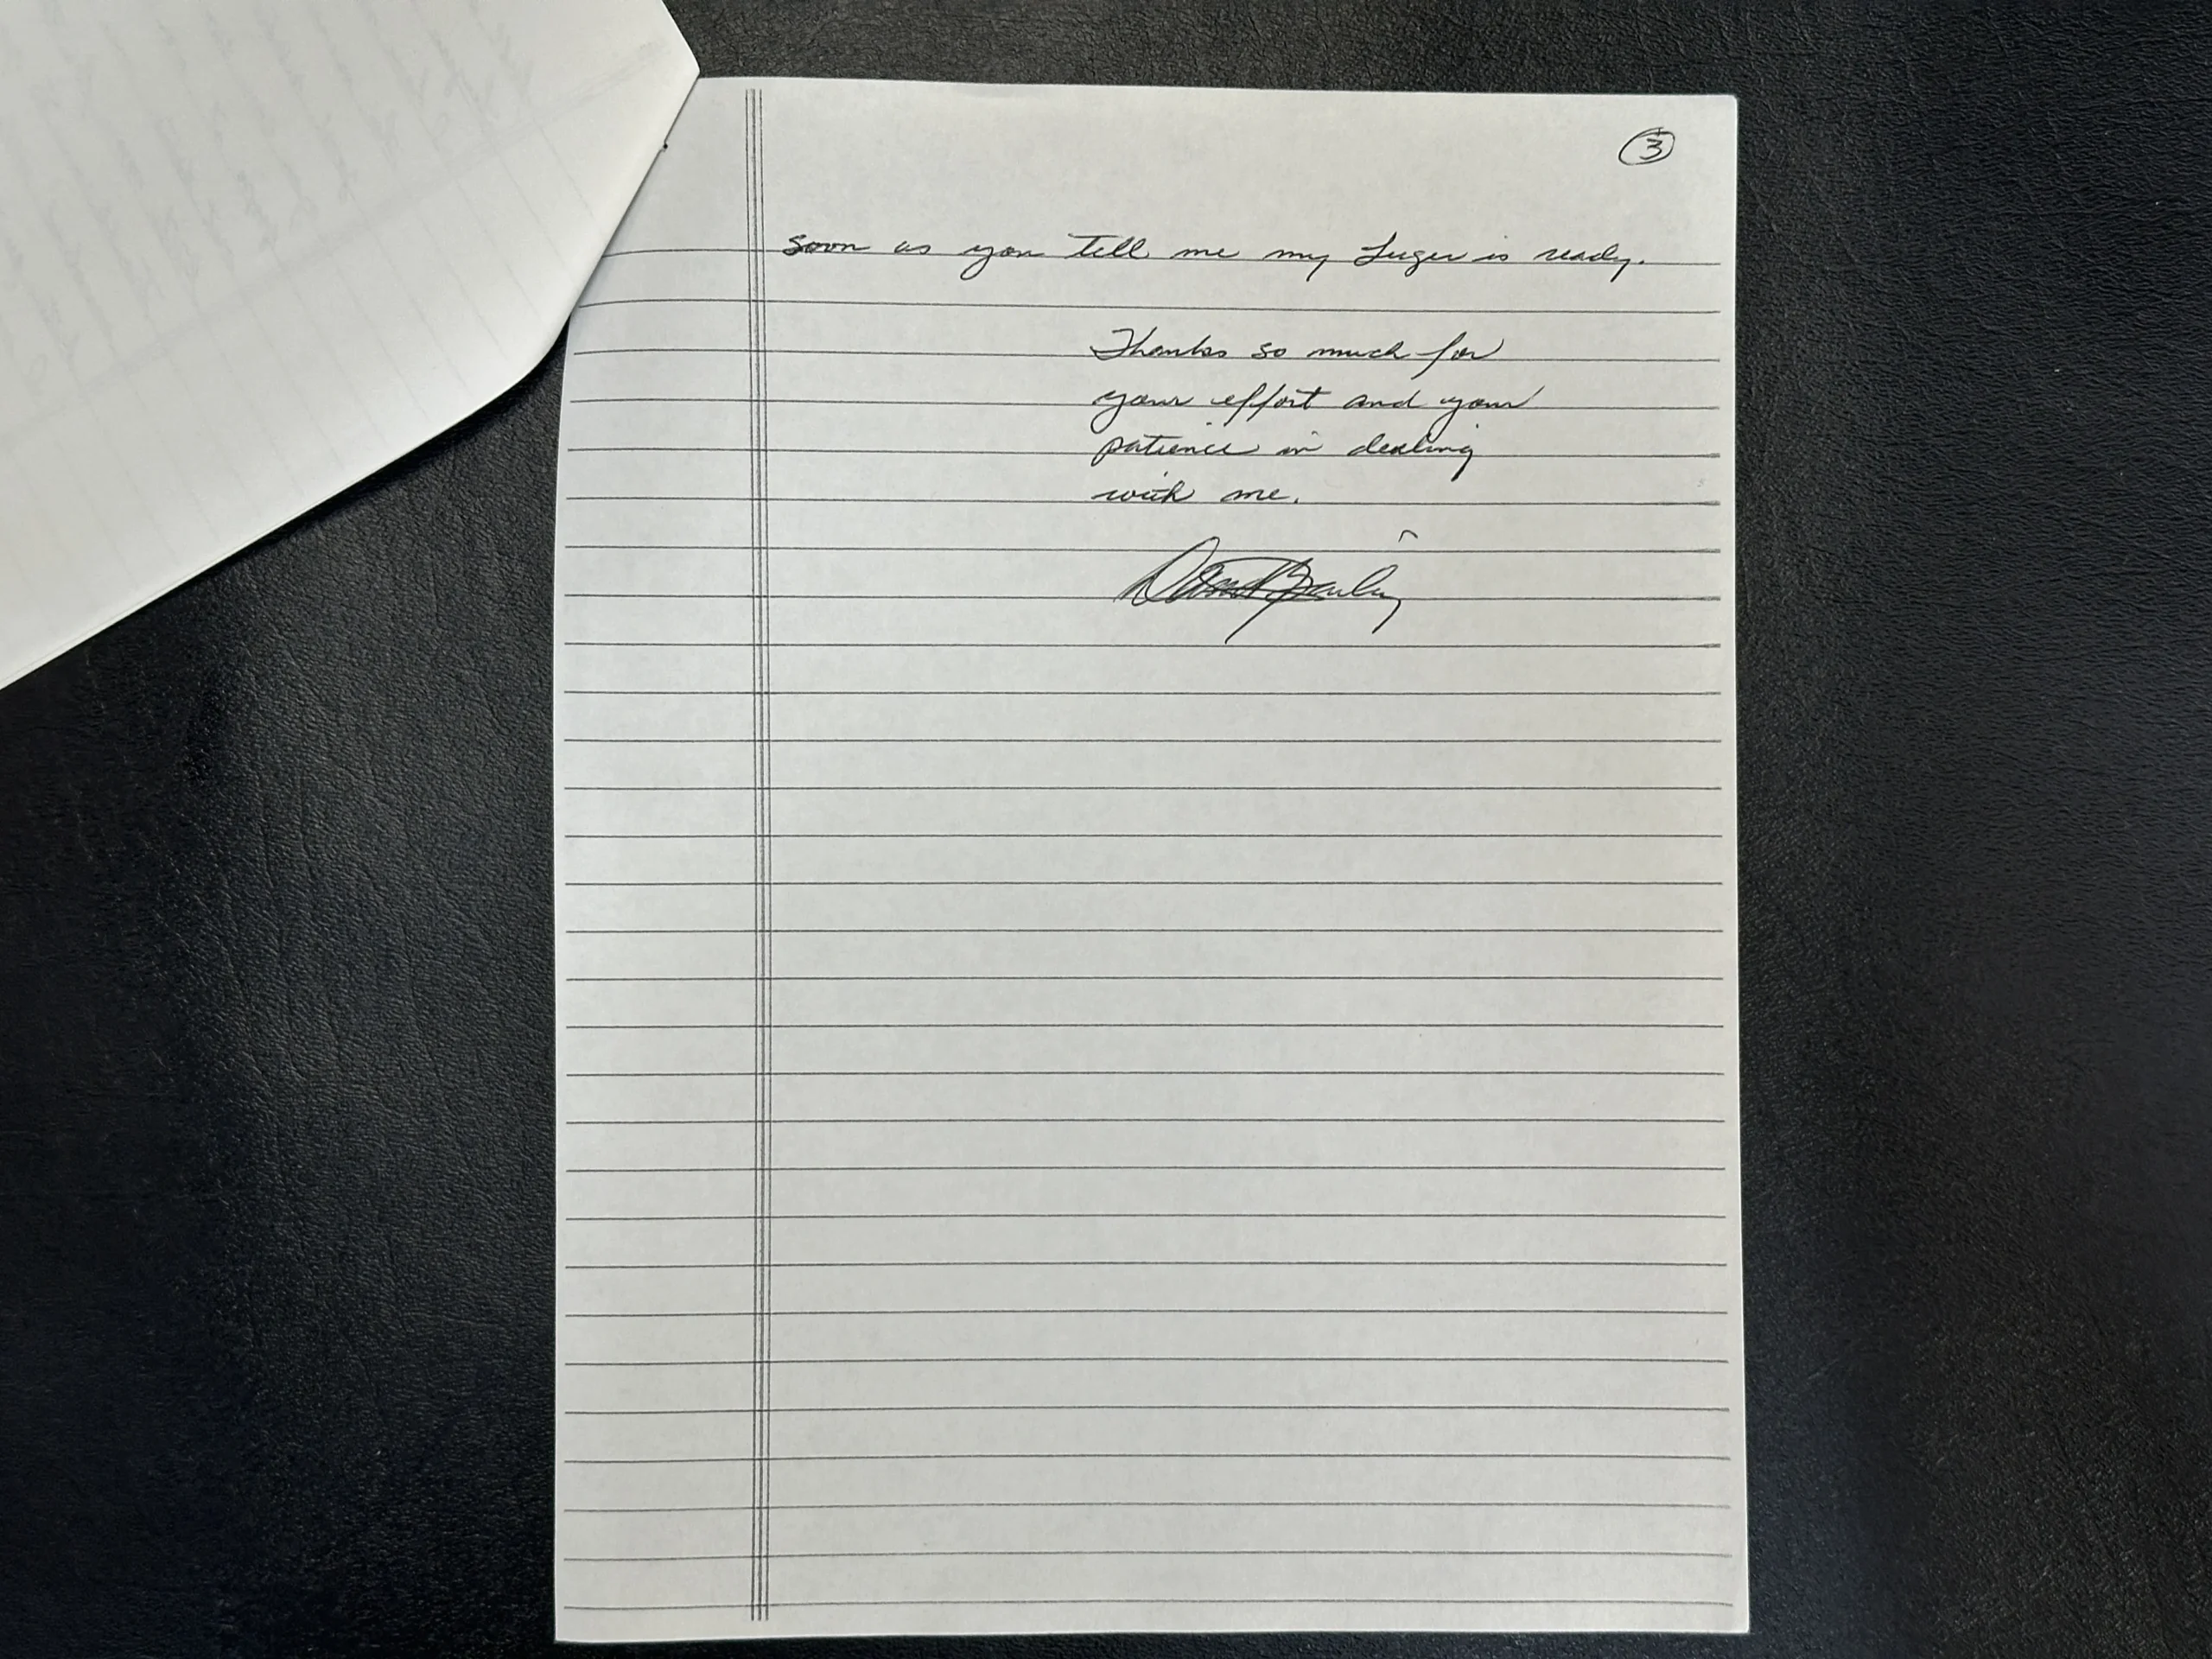 3
soon as you tell me my Luger is ready.
Thanks so much for
your effort and your
patience in dealing
with me.